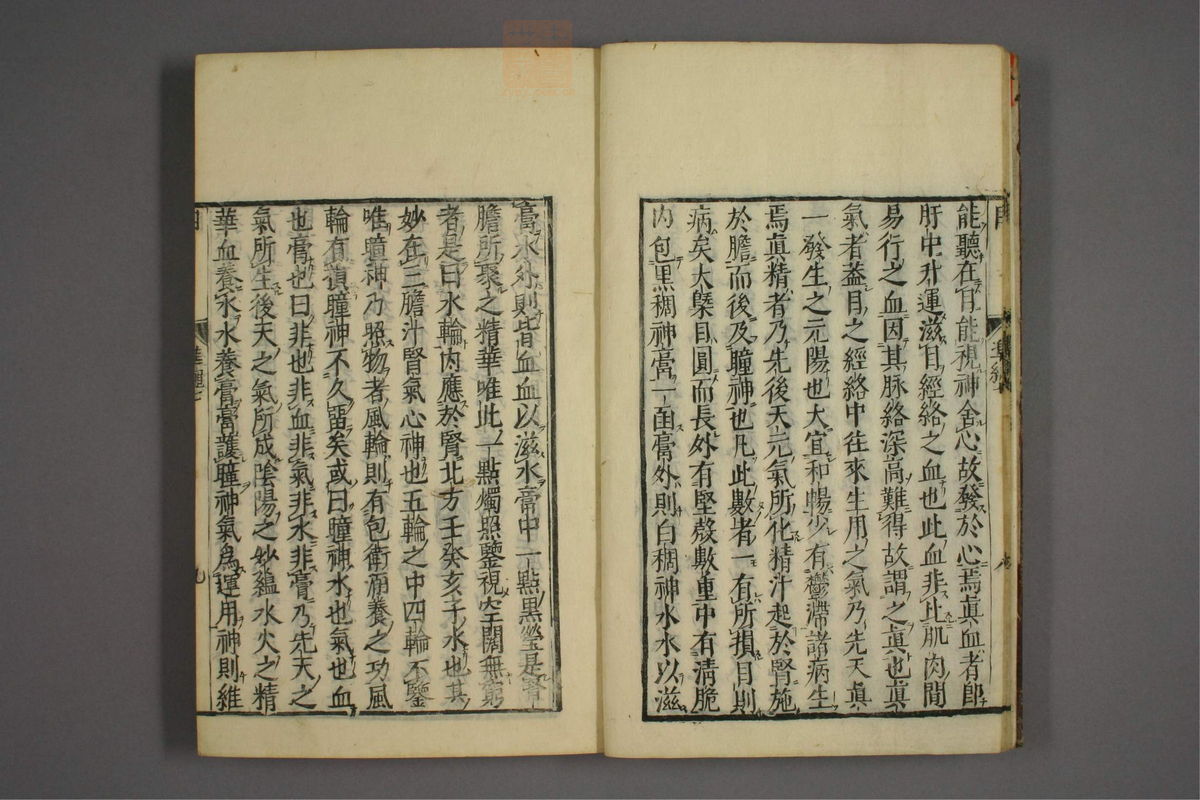 能聽在目能視神舍心故發於心焉眞血者卽
肝中升運滋目經絡之血也此血非比肌肉間
易行之血因其脉絡深高難得故謂之眞也眞
氣者葢目之經絡中往來生用之氣乃先天眞
一發生之元陽也大宜和暢少有鬱滯諸病生
焉眞精者乃先後天元氣所化精汁起於腎施
於膽而後及瞳神也凡此數者一有所損目則
病矣大槩目圓而長外有堅殼數重中有淸脆
内包黒稠神膏一凾膏外則白稠神水水以滋
膏水外則皆血血以滋水膏中一點黒瑩是腎
膽所聚之精華唯此一點燭照鑒視空闊無窮
者是曰水輪内應於腎北方壬癸亥子水也其
妙在三膽汁腎氣心神也五輪之中四輪不鑒
唯瞳神乃照物者風輪則有包衛涵養之功風
輪有損瞳神不久留矣或曰瞳神水也氣也血
也膏也曰非也非血非氣非水非膏乃先天之
氣所生後天之氣所成陰陽之妙蘊水火之精
華血養水水養膏膏護瞳神氣爲運用神則維